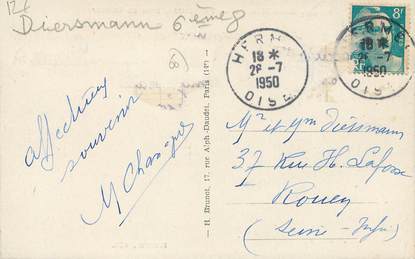 Diersmann 6ème
(8)
HERM
18 *
26 -7
1950
OISE
8F
HERME
18 *
26 -7
1950
OISE
affectueux
souvenir
— H. Brunot, 17, rue Alph.-Daudet, Paris (14e) —
Mr et Mme Diersmann
37 Rue H. Lafosse
Rouen
(Seine-Infre)